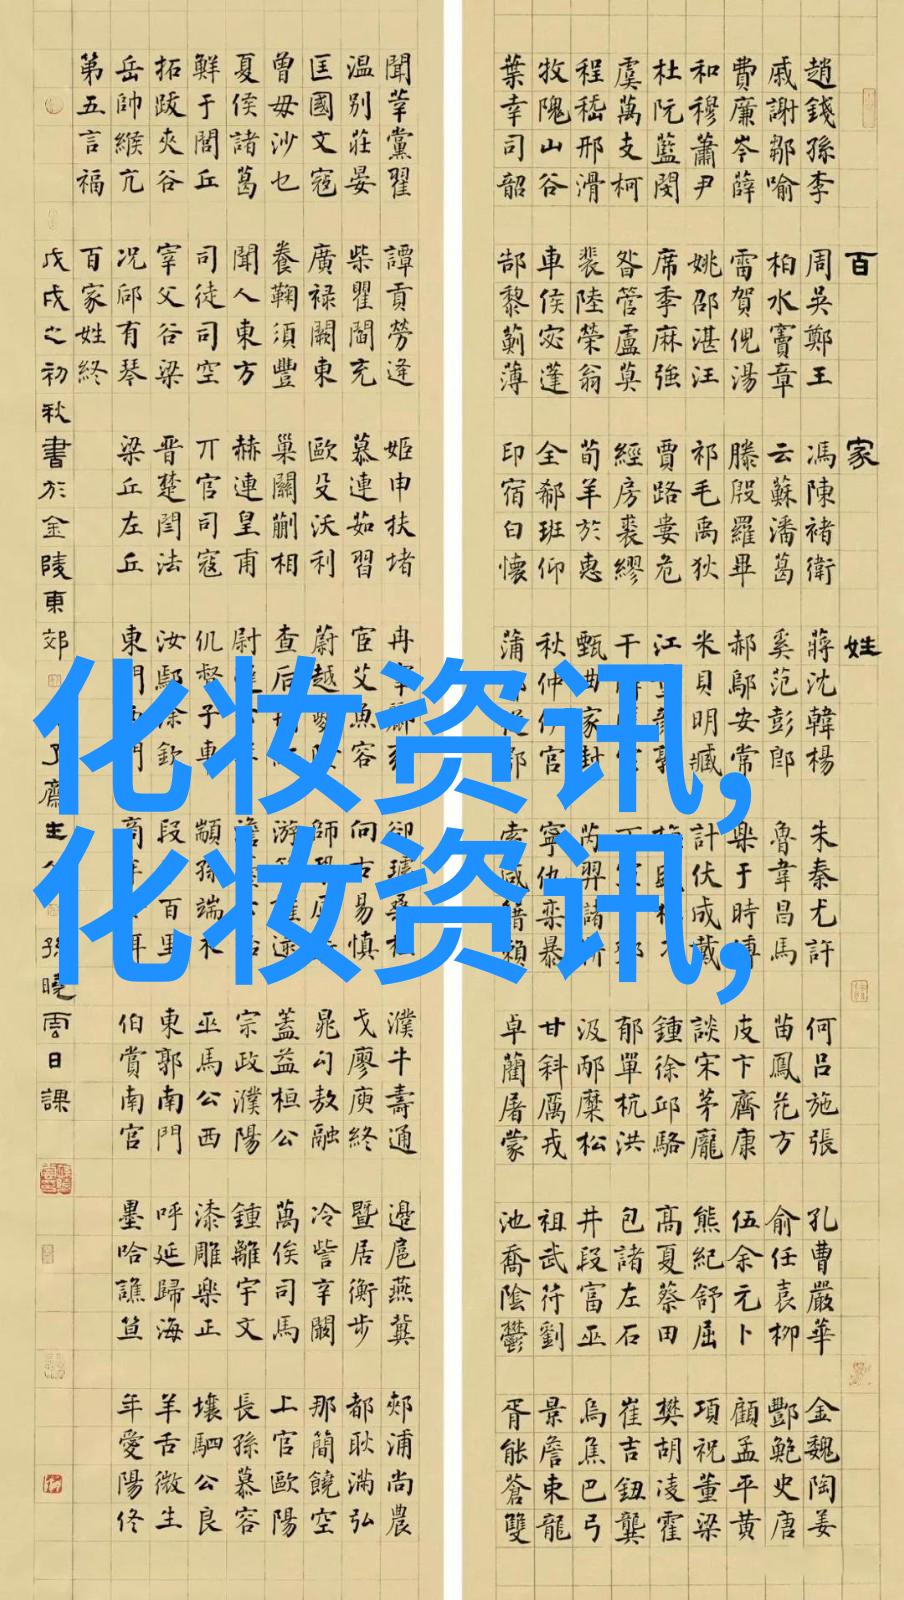 百家姓
趙錢孫李 周吳鄭王 馮陳褚衛 蔣沈韓楊 朱秦尤許 何呂施張 孔曹嚴華 金魏陶姜
戚謝鄒喻 柏水竇章 云蘇潘葛 奚范彭郎 魯韋昌馬 苗鳳花方 俞任袁柳 酆鮑史唐
費廉岑薛 雷賀倪湯 滕殷羅畢 郝鄔安常 樂于時傅 皮卞齊康 伍余元卜 顧孟平黃
和穆蕭尹 姚邵湛汪 祁毛禹狄 米貝明臧 計伏成戴 談宋茅龐 熊紀舒屈 項祝董梁
杜阮藍閔 席季麻強 賈路婁危 江 鍾徐邱駱 高夏蔡田 樊胡凌霍
虞萬支柯 昝管盧莫 經房裘繆 干 郁單杭洪 包諸左石 崔吉鈕龔
程嵇邢滑 裴陸榮翁 荀羊於惠 甄曲家封 芮羿諸 汲邴糜松 井段富巫 烏焦巴弓
牧隗山谷 車侯宓蓬 全郗班仰 秋仲伊宮 寧仇欒暴 甘斜厲戎 祖武符劉 景詹束龍
葉幸司韶 郜黎薊薄 印宿白懷 蒲 索咸籍賴 卓藺屠蒙 池喬陰鬱 胥能蒼雙
聞莘黨翟 譚貢勞逄 姬申扶堵 冉宰 濮牛壽通 邊扈燕冀 郟浦尚農
温別莊晏 柴瞿閻充 慕連茹習 宦艾魚容 向古易慎 戈廖庾終 暨居衡步 都耿滿弘
匡國文寇 廣祿闕東 歐殳沃利 蔚越 師 晁勾敖融 冷訾辛闞 那簡饒空
曾毋沙乜 養鞠須豐 巢關蒯相 查后 游 蓋益桓公 萬俟司馬 上官歐陽
夏侯諸葛 聞人東方 赫連皇甫 尉 宗政濮陽 鍾離宇文 長孫慕容
鮮于閭丘 司徒司空 亓官司寇 仉督子車 顓孫端木 巫馬公西 漆雕樂正 壤駟公良
拓跋夾谷 宰父谷梁 晉楚閆法 汝鄢涂欽 段 百里 東郭南門 呼延歸海 羊舌微生
岳帥緱亢 況郈有琴 梁丘左丘 東門 門 商 伯賞南宮 墨哈譙笪 年愛陽佟
第五言福 百家姓終
戊戌之初秋書於金陵東郊 了齋主 孫曉雲日課
化妆资讯,
化妆资讯,